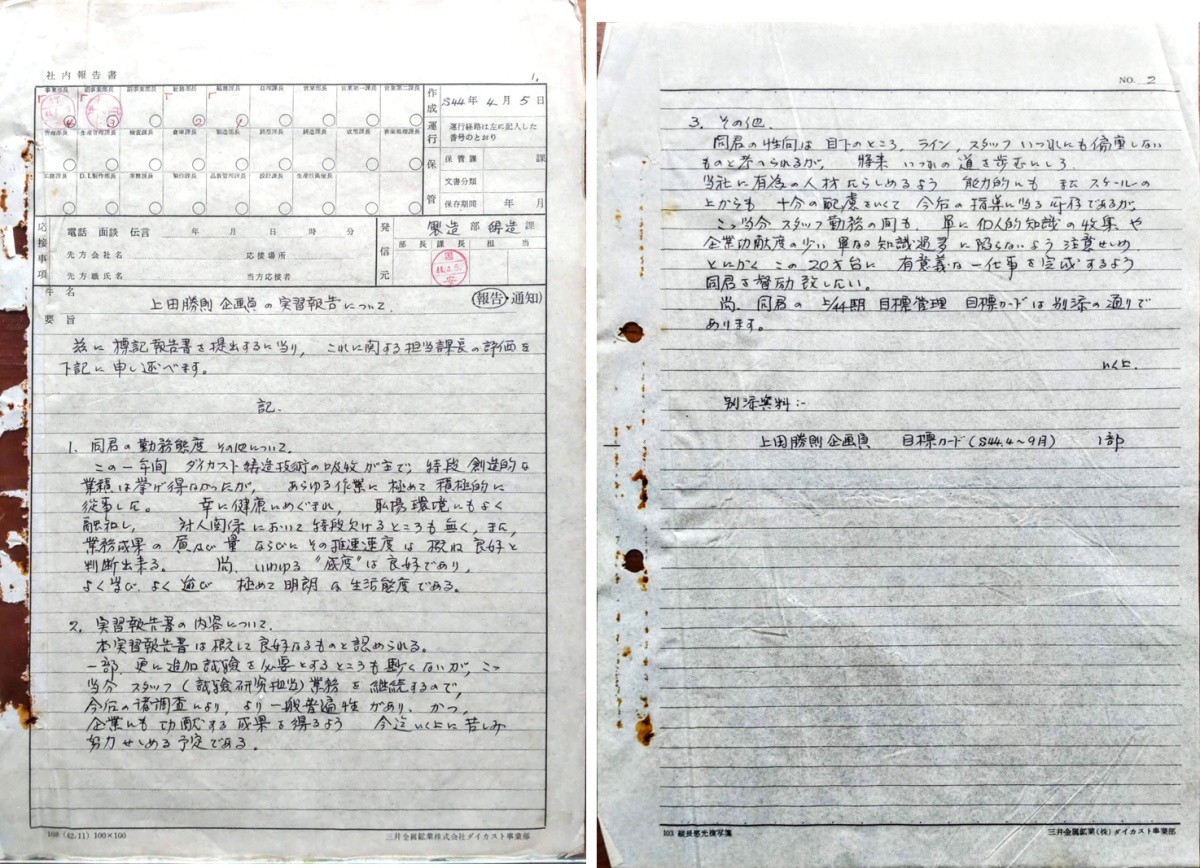 社内報告書
1.
事業部長 副事業部長 副事業部長 総務部長 総務課長 経理課長 営業部長 営業第一課長 営業第二課長
4 3 2 1
製造部長 生産管理課長 検査課長 倉庫課長 製造部長 鋳造課長 鋳造課長 成型課長 表面処理課長
工務課長 D.I.製作部長 業務課長 製作課長 品質管理課長 設計課長 生産技術室長
作成 S44年 4月 5日
運行 運行経路は左に記入した番号のとおり
保管 保管課 課
文書分類
保存期間 年 月
応接事項 電話 面談 伝言 年 月 日 時 分
先方会社名 応接場所
先方職氏名 当方応接者
発信元 製造部 鋳造課
部長 課長 担当
件名
上田勝則 企画員の実習報告について.
(報告・通知)
要旨
茲に標記報告書を提出するに当り, これに関する担当課長の評価を
下記に申し述べます。
記.
1. 同君の勤務態度 その他について.
この一年間 ダイカスト鋳造技術の吸収が主で, 特段 創造的な
業積は挙げ得なかったが, あらゆる作業に極めて積極的に
従事した。 幸に健康にめぐまれ, 職場環境にもよく
融和し, 対人関係において特段欠けるところも無く, また,
業務成果の質及び量 ならびにその推進速度は概ね良好と
判断出来る。 尚, いわゆる "感度"は良好であり,
よく学び, よく遊び 極めて明朗な生活態度である。
2. 実習報告書の内容について.
本実習報告書は概して良好なるものと認められる。
一部, 更に追加試験を必要とするところも尠くないが, こゝ
当分 スタッフ(試験研究担当)業務を継続するので,
今后の諸調査により, より一般普遍性があり, かつ,
企業にも功献する成果を得るよう 今迄以上に苦しみ
努力せしめる予定である。
100 (42.11) 100×100
三井金属鉱業株式会社ダイカスト事業部
NO. 2
3. その他.
同君の性向は目下のところ, ライン, スタッフいづれにも偏重しない
ものと考へられるが, 将来 いづれの道を歩むにしろ
当社に有為の人材たらしめるよう 能力的にも またスケールの
上からも 十分の配慮をいて 今后の指導に当る所存であるが,
こゝ当分 スタッフ勤務の間も, 単に個人的知識の收集や
企業功献度の少い 単なる知識過多に陥らないよう 注意せしめ,
とにかく この20才台に 有意義な一仕事を完成するよう
同君を督励致したい。
尚, 同君の 上/44期 目標管理 目標カードは別添の通りで
あります。
以上.
別添資料:-
上田勝則企画員 目標カード(S44.4〜9月) 1部
103 縦長感光複写箋
三井金属鉱業(株)ダイカスト事業部